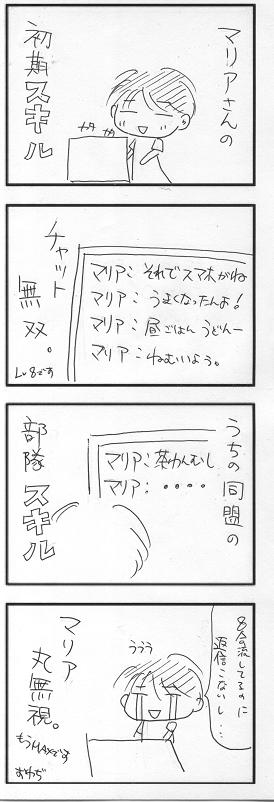 マリアさんの
カタ カタ
初期スキル
マリア：それでスマホがね
マリア：うまくなったんよ！
マリア：昼ごはん うどんー
マリア：ねむいよう。
チャット
無双。
Lv8です
うちの同盟の
マリア：茶わんむし
マリア：・・・・
部隊スキル
流してるのに
返信こないし…
ううう
マリア
丸無視。
もうMAXです